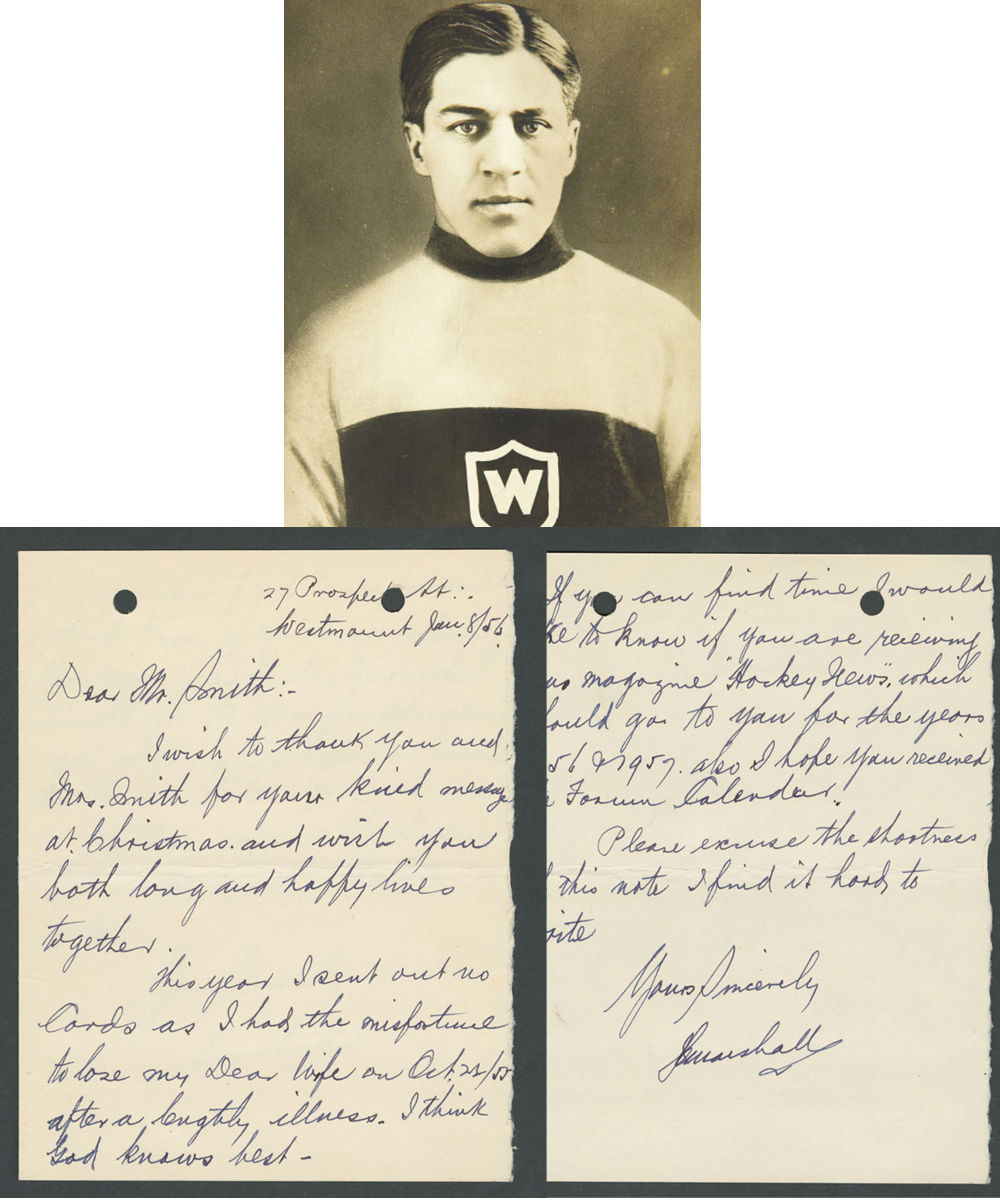 W
27 Prospect St:-
Westmount Jan. 8/56
Dear Mr. Smith:-
I wish to thank you and
Mrs. Smith for your kind message
at Christmas. and wish you
both long and happy lives
together.
This year I sent out no
Cards as I had the misfortune
to lose my Dear Wife on Oct.
after a lengthy illness. I think
God knows best -
If you can find time I would
to know if you are receiving
magazine "Hockey News". which
ould go to you for the years
56 & 1957. also I hope you received
Forum Calendar.
Please excuse the shortness
this note I find it hard to
rite
Yours Sincerely
J Marshall